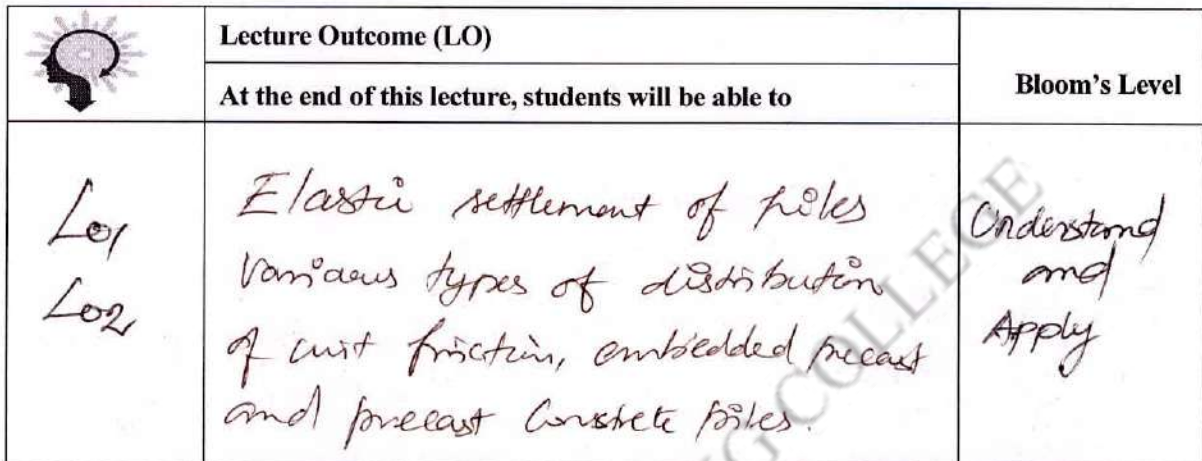 Lecture Outcome (LO)
At the end of this lecture, students will be able to
Bloom's Level
LO1
LO2
Elastic settlement of piles
various types of distribution
of unit friction, embedded precast
and precast Concrete piles.
Understand
and
Apply
G COLLEGE